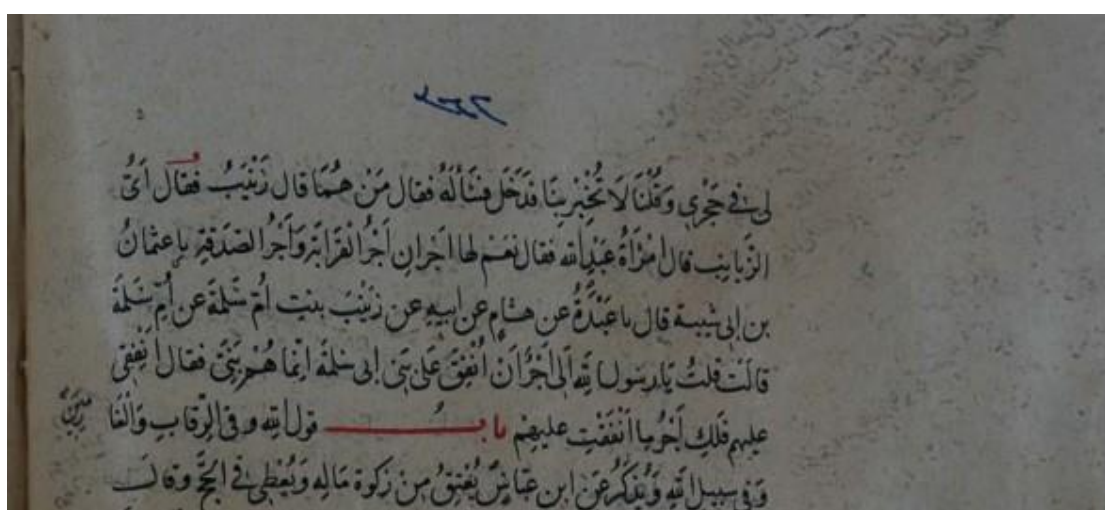 لى فى حَجْرِى وَقُلْنَا لَا تُخْبِرْ بِنَا فَدَخَلَ فَسَأَلَهُ فقال مَنْ هُمَا قال زَيْنَبُ فقال اَىُّ
الزَّيَانِبِ قال امْرَأَةُ عَبْدِ الله فقال نعَم لها اَجْرانِ اَجْرُ القَرَابَةِ وَاَجْرُ الصَدَقَةِ نا عثمانُ
بن ابى شيبة قال نا عَبْدَةُ عن هشامٍ عن ابيهِ عن زَيْنَبَ بنت اُمّ سَلَمَةَ عن اُمّ سَلَمَةَ
قالَت قلتُ يَا رسول الله اَلِى اَجْرٌ اَنْ اُنْفِقَ عَلَى بَنِى ابى سَلمَة اِنّما هُمْ بَنِىَّ فقال اَنْفِقِى
عليهم فلكِ اَجْرُ ما اَنْفَقْتِ عليهِمْ بابُ قول الله وفى الرِّقابِ وَالْغَا
رِمِينَ
وَفى سبيل الله وَيُذْكَرُ عَن ابن عبّاسٍ يُعْتِقُ مِنْ زكوة مَالِه وَيُعْطِى فى الحَجِّ وقالَ